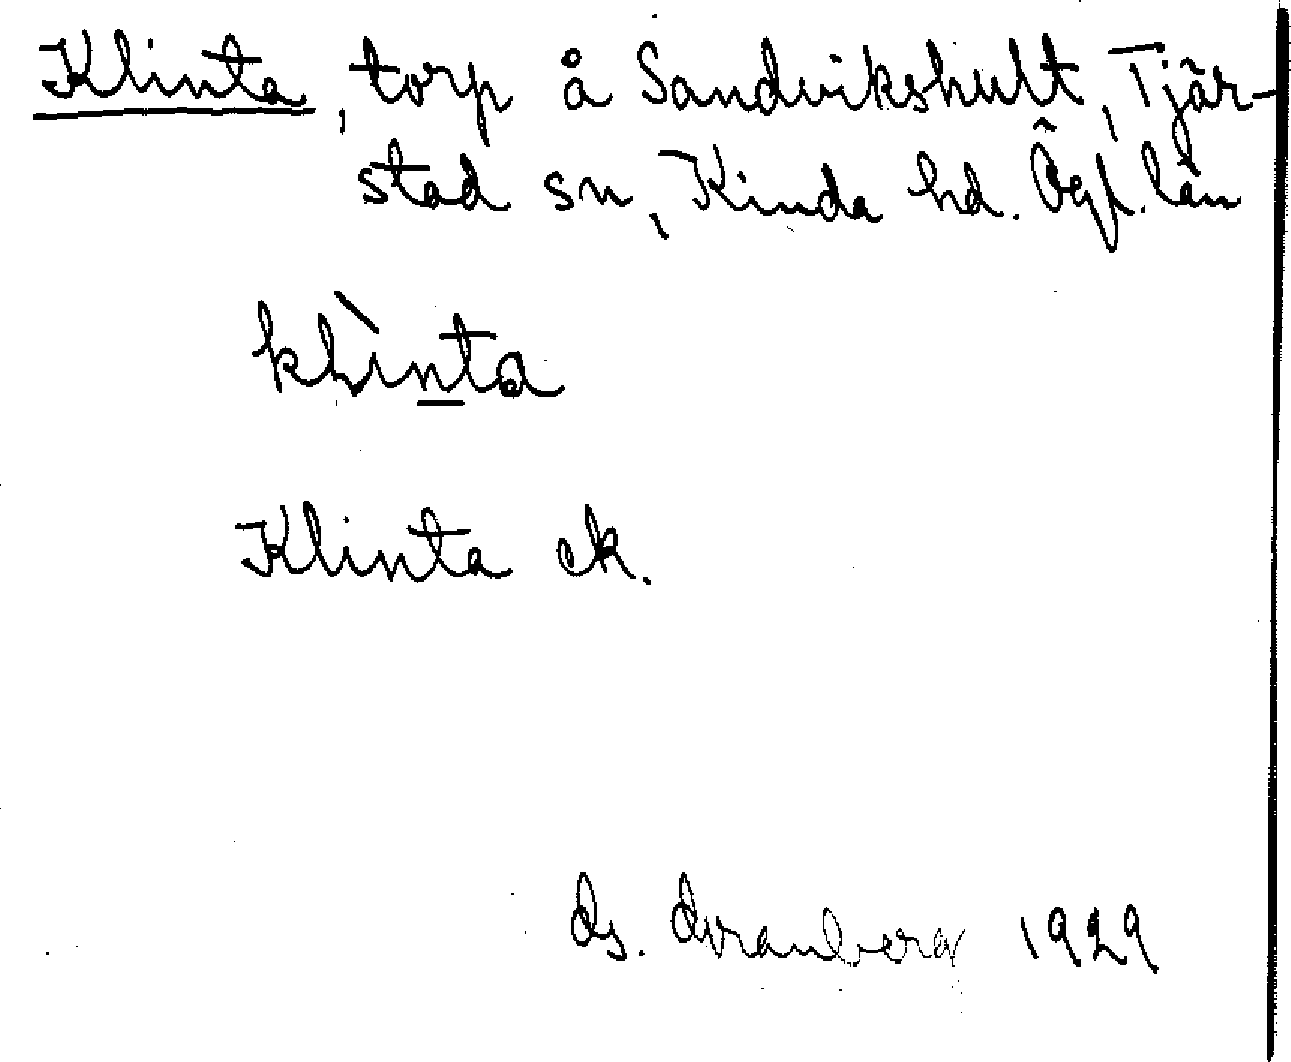 Klinta, torp å Sandvikshult, Tjär-
stad sn, Kinda hd. Ögl. län
klìnta
Klinta ek.
1929